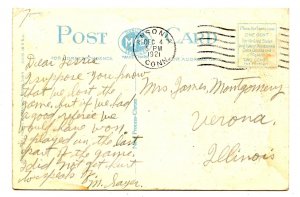 POST CARD
ANSONIA
DEC 4
5 PM
1921
CONN.
Dear
I suppose you know
that we lost the
game, but if we had
a good referee we
would have won.
I played on the last
part of the game.
I did not get hurt
M. Sayer.
Mrs. James Montgomery
Verona,
Illinois
ONE CENT